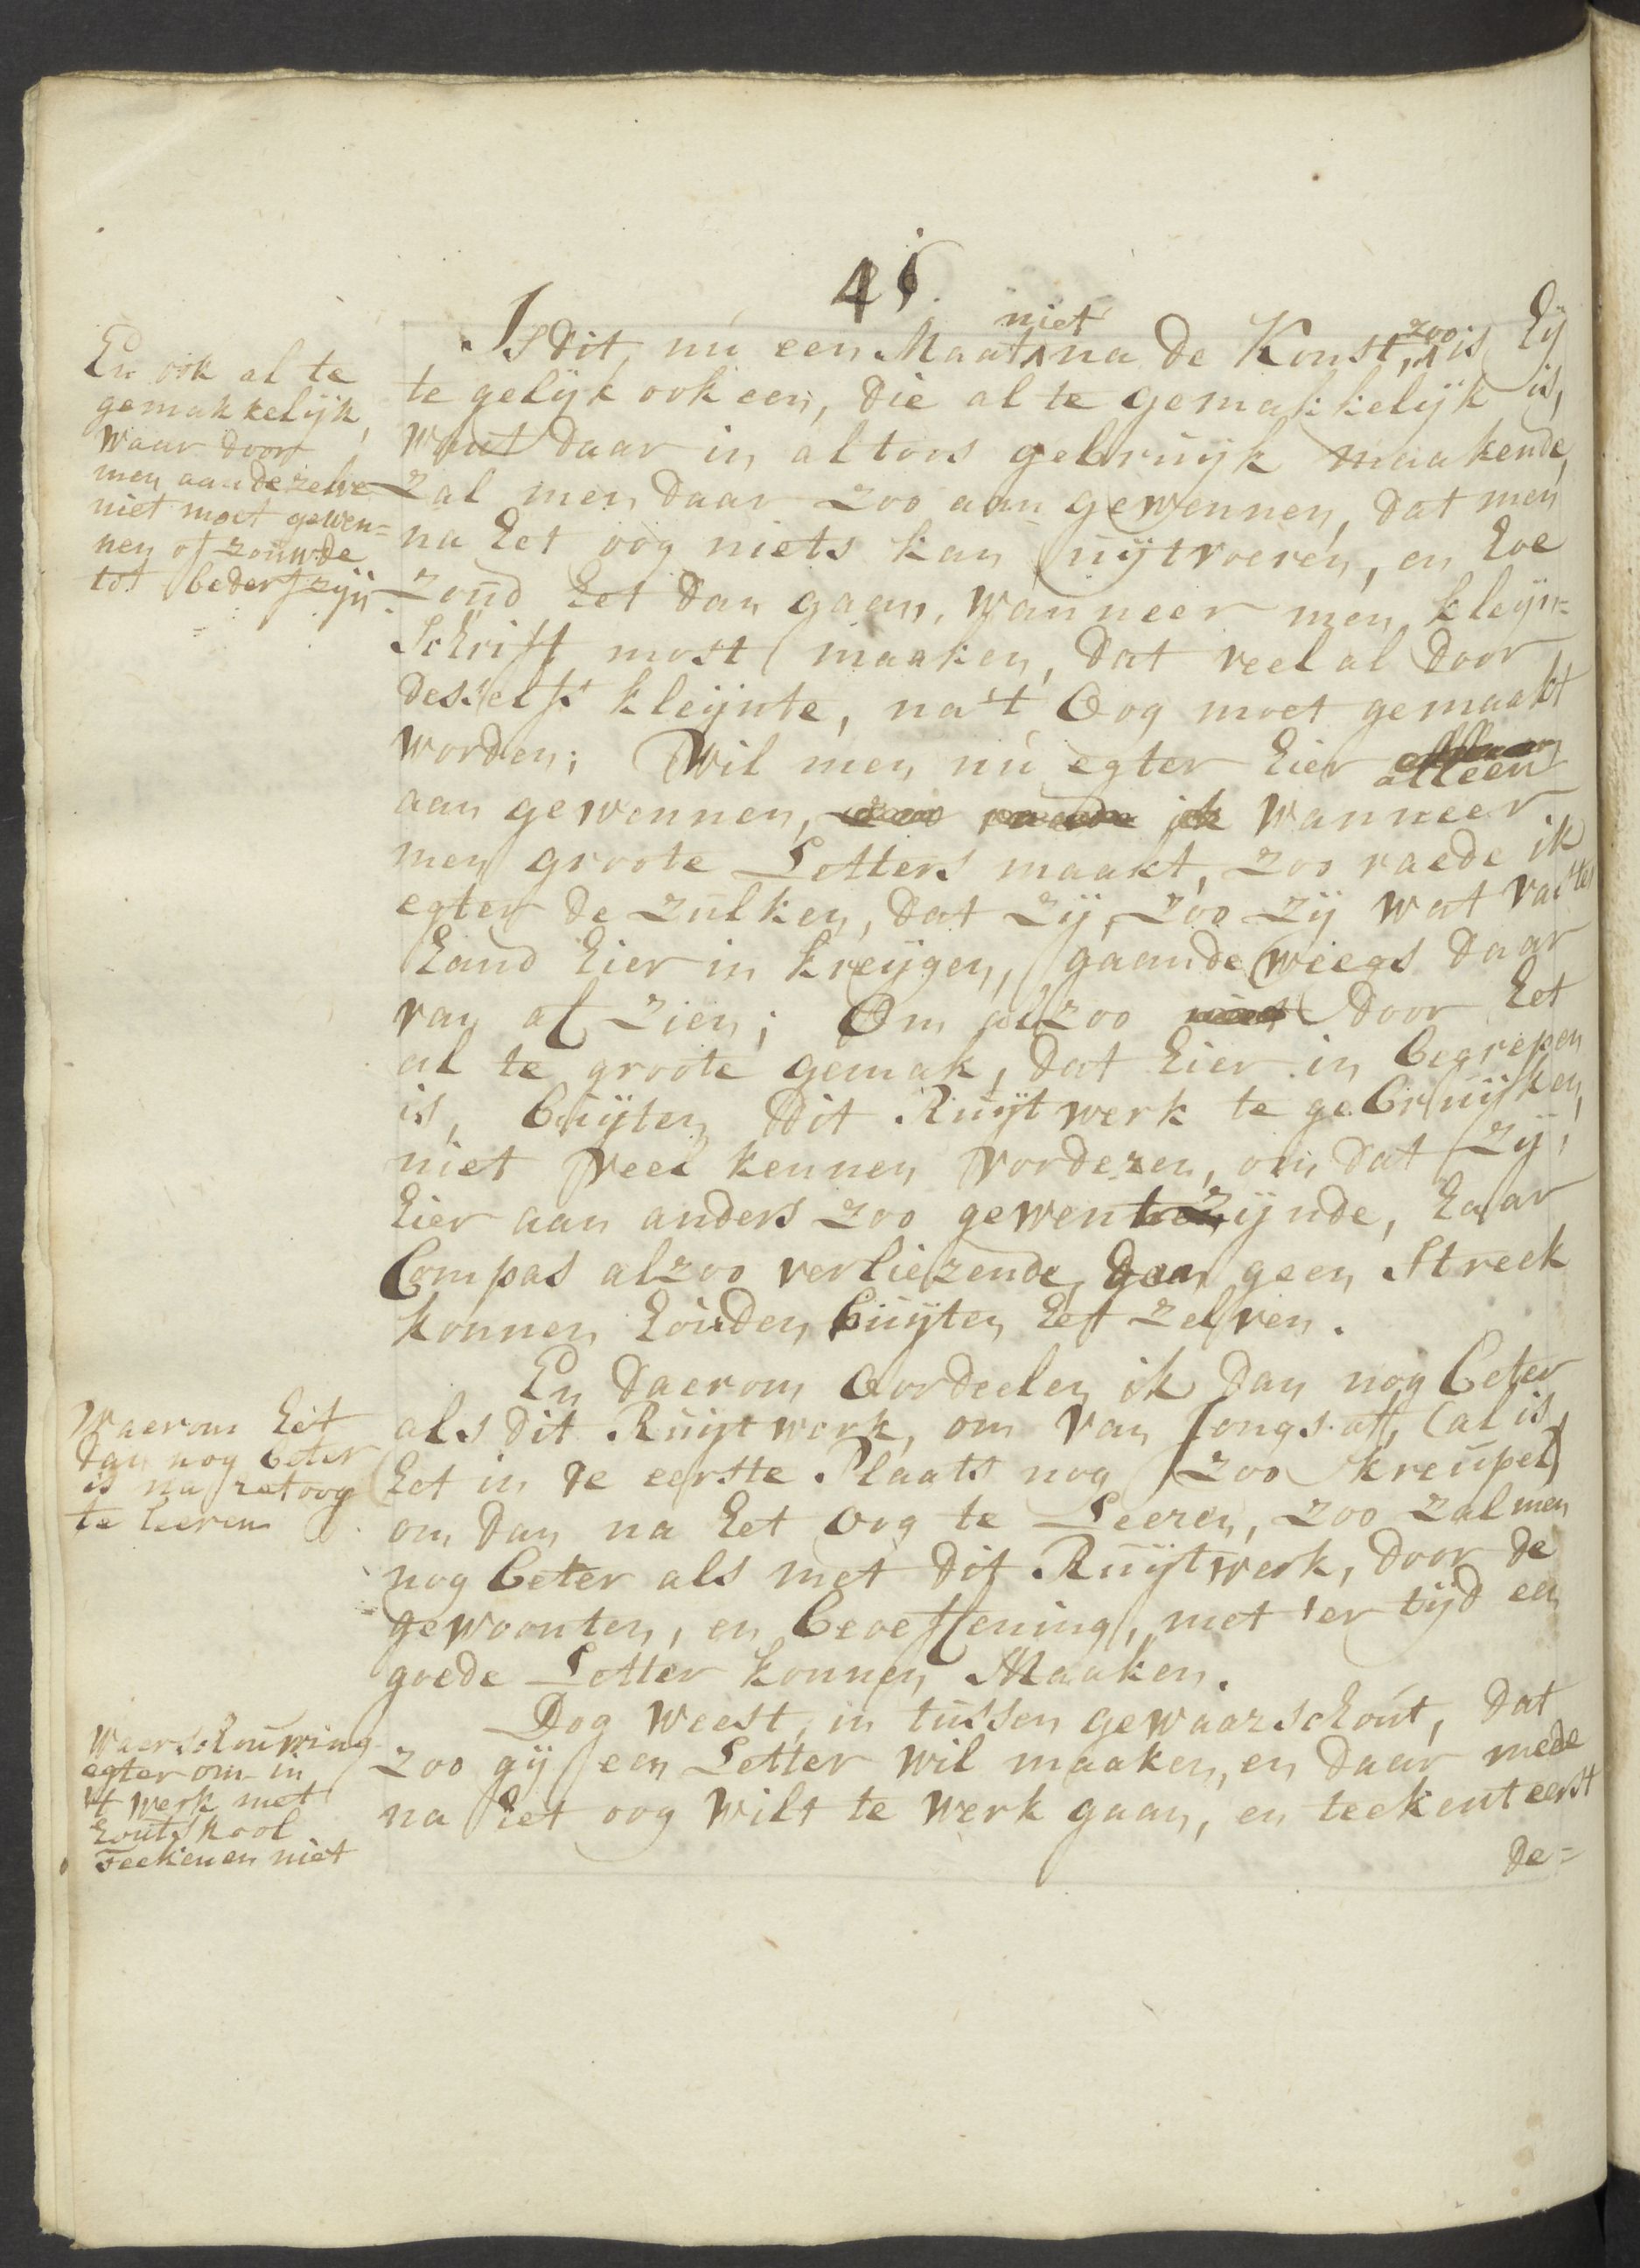 41
Is dit, nú een Maat niet na de Konst, zoo is hij
te gelijk ook een, die al te gemakkelijk is,
want daar in altoos gebruijk maakende,
zal men daar zoo aan gewennen, dat men
na het oog niets kan uijtvoeren, en hoe
zoud het dan gaan, wanneer men kleijn=
schrift most maaken, dat veel al door
desselfs kleijnte, na 't Oog moet gemaakt
worden; Wil men nú egter hier alleen
aan gewennen, wanneer
men groote Letters maakt, zoo raede ik
egter de zulken, dat zij, zoo zij wat vaster
hand hier in kreijgen, gaande weegs daar
van af zien; Om alzoo door het
al te groote gemak, dat hier in begrepen
is, buijten dit Ruijtwerk te gebruijken,
niet veel kennen vorderen, om dat zij,
hier aan anders zoo gewent zijnde, haar
Compas alzoo verliezende, geen Streek
konnen houden buijten het zelven.
En daerom Oordeelen ik dan nog beter
als dit Ruijtwerk, om van Jongs af, (al is
het in de eerste Plaats nog zoo kreupel)
om dan na het Oog te Leeren, zoo zal men
nog beter als met dit Ruijtwerk, door de
gewoonten, en beoeffening, met 'er tijd een
goede Letter konnen Maaken.
Dog weest, in tussen gewaarschout, dat
zoo gij een Letter wil maaken, en daar mede
na het oog wilt te werk gaan, en teekent eerst
de=
En ook al te
gemakkelijk,
waar door
men aan dezelve
niet moet gewen=
nen of zouw de
tot bederf zijn
Waerom hit
dan nog beter
is na het oog
te leeren
Waerschouwing
egter om in
't werk met
houtskool
teekenen niet